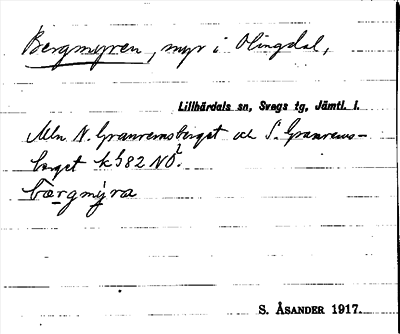 Bergmyren, myr i Olingdal,
Lillhärdals sn, Svegs tg, Jämtl. l.
Mln N. Granremsberget och S. Granrems-
berget k 582 NO².
bærgmýra
S. ÅSANDER 1917.